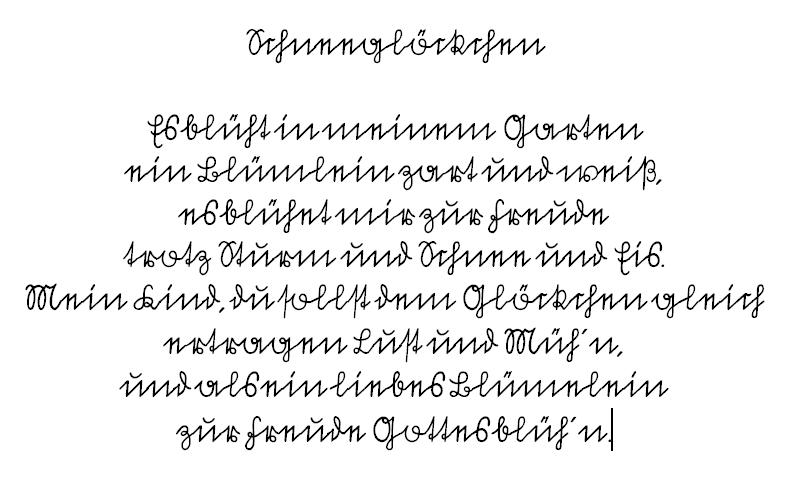 Schneeglöckchen
Es blüht in meinem Garten
ein Blümlein zart und weiß,
es blühet mir zur Freude
trotz Sturm und Schnee und Eis.
Mein Kind, du sollst dem Glöckchen gleich
ertragen Lust und Müh´n,
und als ein liebes Blümelein
zur Freude Gottes blüh´n.